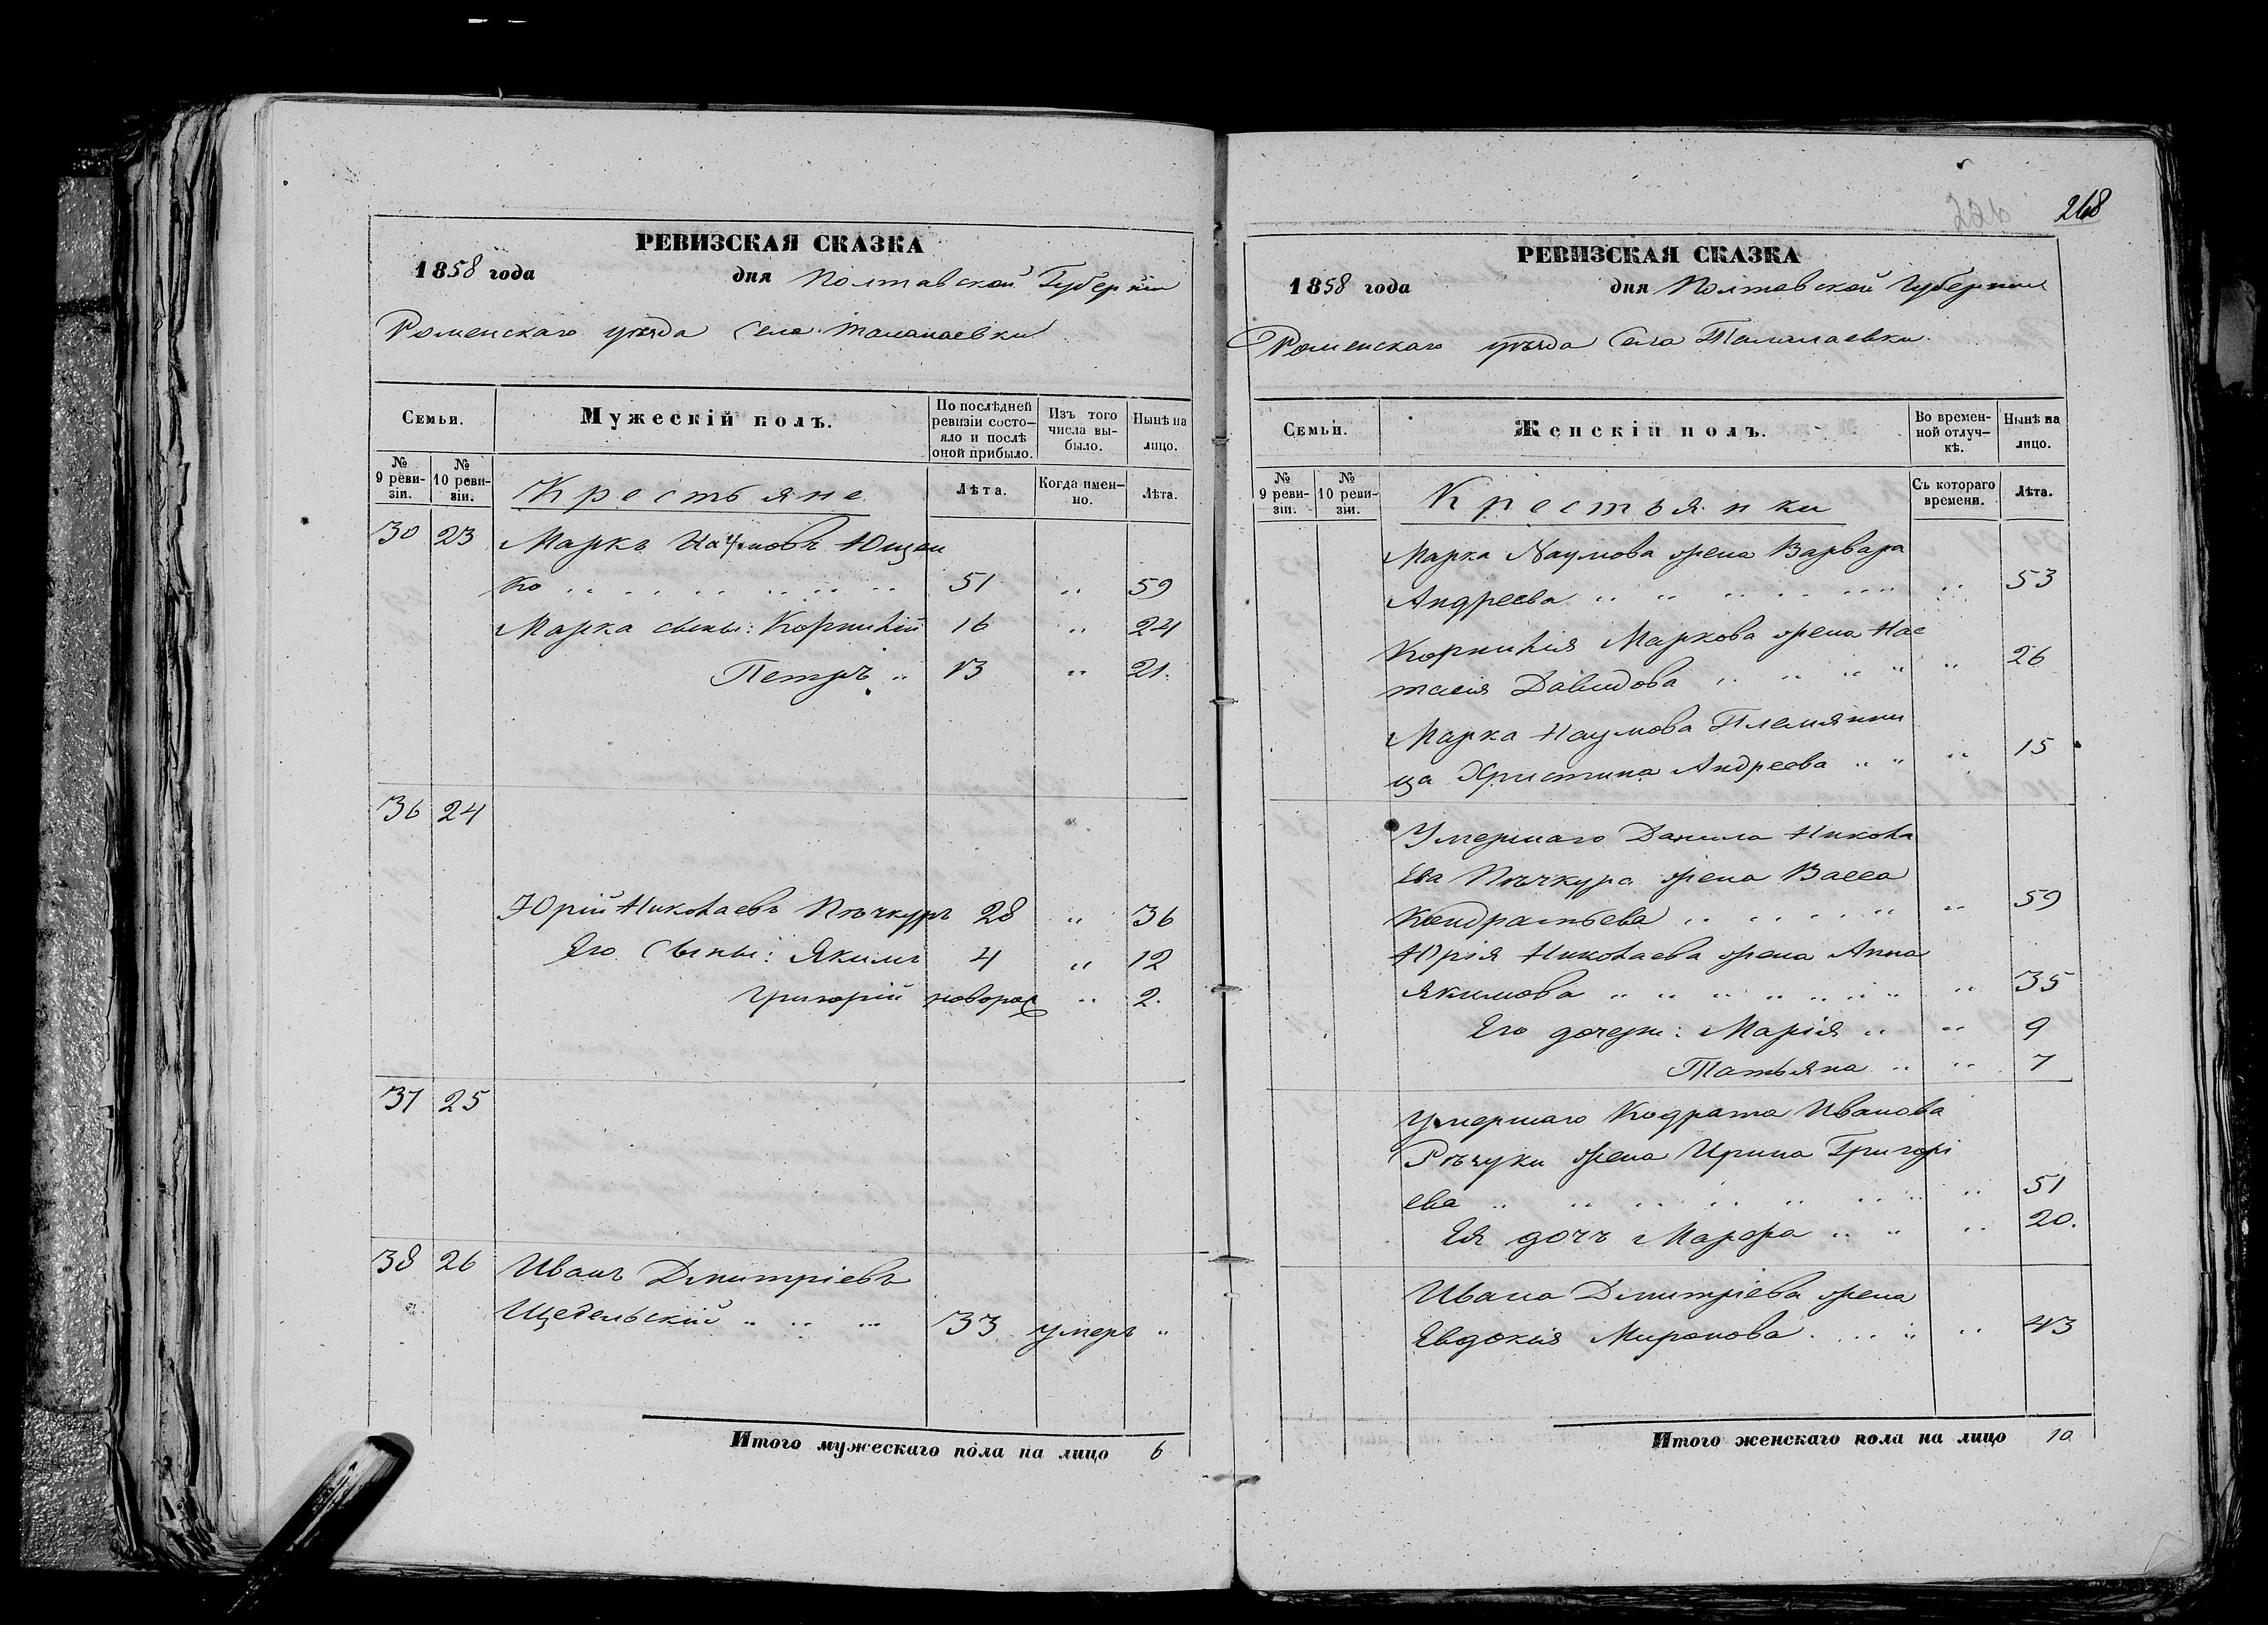 РЕВИЗСКАЯ СКАЗКА
1858 года дня Полтавской Губерніи
Роменскаго уѣзда Села Талалаевки
Семьи. Мужескій полъ. По послѣдней ревизіи состояло и послѣ оной прибыло. Изъ того числа выбыло. Нынѣ на лицо.
№ 9 ревизіи. № 10 ревизіи. Крестьяне Лѣта. Когда именно. Лѣта.
30 23 Маркъ Наумовъ Ющен
ко 51 " 59
Марка сыны: Корнилій 16 " 24
Петръ " 13 " 21.
36 24
Юрій Николаевъ Пѣчкуръ 28 " 36
Его Сыны: Якимъ 4 " 12
Григорійноворож " 2.
37 25
38 26 Иванъ Дмитріевъ
Щебельскій " " " 33 умеръ "
Итого мужескаго пола на лицо 6
268
РЕВИЗСКАЯ СКАЗКА
1858 года дня Полтавской Губерніи
Роменскаго уѣзда Села Талалаевки.
Семьи. Женскій полъ. Во временной отлучкѣ. Нынѣ на лицо.
№ 9 ревизіи. № 10 ревизіи. Крестьянки Съ котораго времени. Лѣта.
Марка Наумова жена Варвара
Андреева " " " " " " 53
Корнилія Маркова жена Нас
тасія Давидова " " " " " 26
Марка Наумова Племянни
ца Христина Андреева " " " 15
Умершаго Данила Никола
ева Пѣчкура жена Васса
Кондратьева " " " " " 59
Юрія Николаева жена Анна
Якимова " " " " " " " " 35
Его дочери: Марія " " 9
Татьяна " " 7
Умершаго Кодрата Иванова
жена Ирина Григорі
ева " " " " " " " " 51
Ея дочь Марфа " " " 20.
Ивана Дмитріева жена
Евдокія Миронова " " " 43
Итого женскаго пола на лицо 10